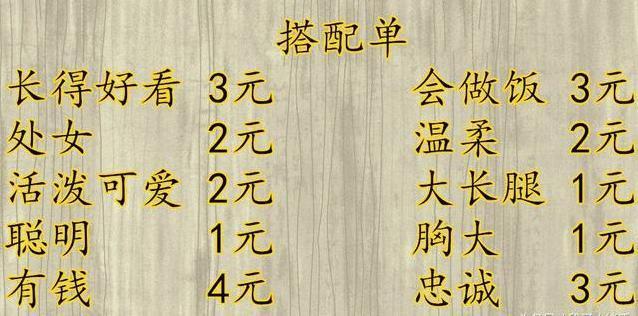 搭配单
长得好看 3元 会做饭 3元
处女 2元 温柔 2元
活泼可爱 2元 大长腿 1元
聪明 1元 胸大 1元
有钱 4元 忠诚 3元